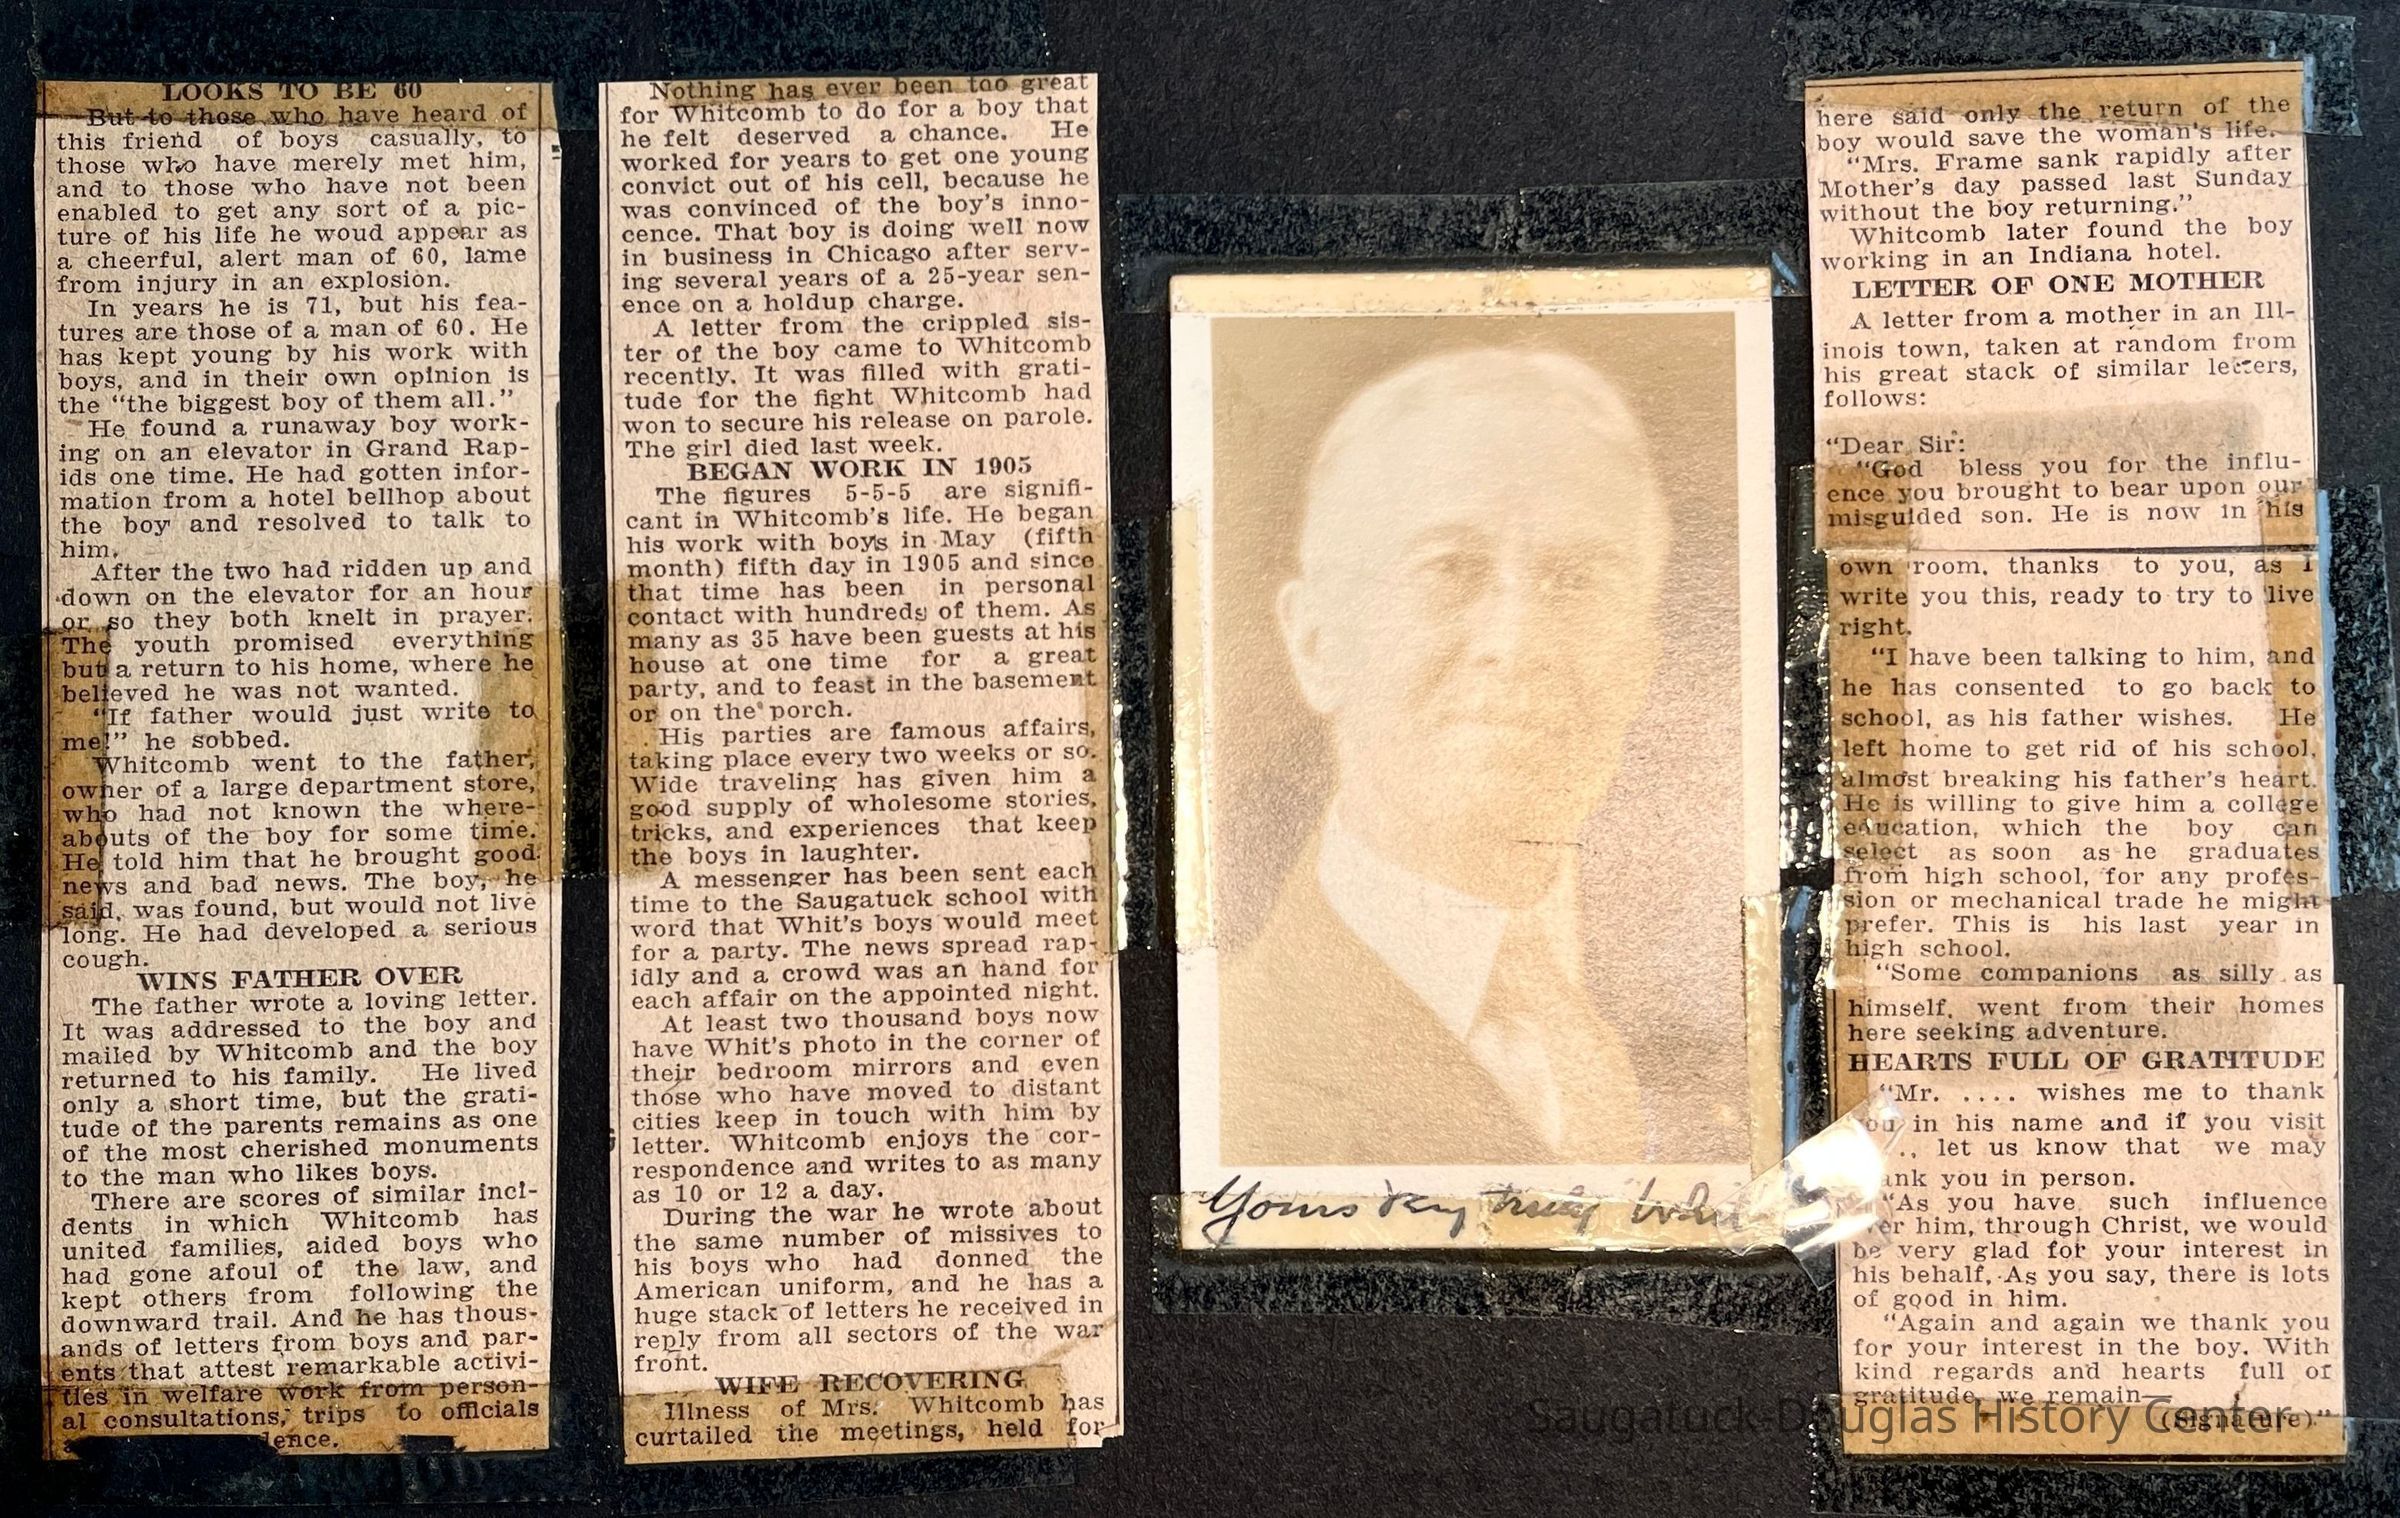 LOOKS TO BE 60
But to those who have heard of
this friend of boys casually, to
those who have merely met him,
and to those who have not been
enabled to get any sort of a pic-
ture of his life he woud appear as
a cheerful, alert man of 60, lame
from injury in an explosion.
In years he is 71, but his fea-
tures are those of a man of 60. He
has kept young by his work with
boys, and in their own opinion is
the "the biggest boy of them all."
He found a runaway boy work-
ing on an elevator in Grand Rap-
ids one time. He had gotten infor-
mation from a hotel bellhop about
the boy and resolved to talk to
him.
After the two had ridden up and
down on the elevator for an hour
or so they both knelt in prayer.
The youth promised everything
but a return to his home, where he
believed he was not wanted.
"If father would just write to
me!" he sobbed.
Whitcomb went to the father,
owner of a large department store,
who had not known the where-
abouts of the boy for some time.
He told him that he brought good
news and bad news. The boy, he
said, was found, but would not live
long. He had developed a serious
cough.
WINS FATHER OVER
The father wrote a loving letter.
It was addressed to the boy and
mailed by Whitcomb and the boy
returned to his family. He lived
only a short time, but the grati-
tude of the parents remains as one
of the most cherished monuments
to the man who likes boys.
There are scores of similar inci-
dents in which Whitcomb has
united families, aided boys who
had gone afoul of the law, and
kept others from following the
downward trail. And he has thous-
ands of letters from boys and par-
ents that attest remarkable activi-
ties in welfare work from person-
al consultations, trips to officials
dence.
Nothing has ever been too great
for Whitcomb to do for a boy that
he felt deserved a chance. He
worked for years to get one young
convict out of his cell, because he
was convinced of the boy's inno-
cence. That boy is doing well now
in business in Chicago after serv-
ing several years of a 25-year sen-
ence on a holdup charge.
A letter from the crippled sis-
ter of the boy came to Whitcomb
recently. It was filled with grati-
tude for the fight Whitcomb had
won to secure his release on parole.
The girl died last week.
BEGAN WORK IN 1905
The figures 5-5-5 are signifi-
cant in Whitcomb's life. He began
his work with boys in May (fifth
month) fifth day in 1905 and since
that time has been in personal
contact with hundreds of them. As
many as 35 have been guests at his
house at one time for a great
party, and to feast in the basement
or on the porch.
His parties are famous affairs,
taking place every two weeks or so.
Wide traveling has given him a
good supply of wholesome stories,
tricks, and experiences that keep
the boys in laughter.
A messenger has been sent each
time to the Saugatuck school with
word that Whit's boys would meet
for a party. The news spread rap-
idly and a crowd was an hand for
each affair on the appointed night.
At least two thousand boys now
have Whit's photo in the corner of
their bedroom mirrors and even
those who have moved to distant
cities keep in touch with him by
letter. Whitcomb enjoys the cor-
respondence and writes to as many
as 10 or 12 a day.
During the war he wrote about
the same number of missives to
his boys who had donned the
American uniform, and he has a
huge stack of letters he received in
reply from all sectors of the war
front.
WIFE RECOVERING
Illness of Mrs. Whitcomb has
curtailed the meetings, held for
Yours Very truly Whit
here said only the return of the
boy would save the woman's life.
"Mrs. Frame sank rapidly after
Mother's day passed last Sunday
without the boy returning."
Whitcomb later found the boy
working in an Indiana hotel.
LETTER OF ONE MOTHER
A letter from a mother in an Ill-
inois town, taken at random from
his great stack of similar letters,
follows:
"Dear Sir:
"God bless you for the influ-
ence you brought to bear upon our
misguided son. He is now in his
own room, thanks to you, as I
write you this, ready to try to live
right.
"I have been talking to him, and
he has consented to go back to
school, as his father wishes. He
left home to get rid of his school,
almost breaking his father's heart.
He is willing to give him a college
education, which the boy can
select as soon as he graduates
from high school, for any profes-
sion or mechanical trade he might
prefer. This is his last year in
high school.
"Some companions as silly as
himself, went from their homes
here seeking adventure.
HEARTS FULL OF GRATITUDE
"Mr. .... wishes me to thank
you in his name and if you visit
.., let us know that we may
ank you in person.
"As you have such influence
ver him, through Christ, we would
be very glad for your interest in
his behalf. As you say, there is lots
of good in him.
"Again and again we thank you
for your interest in the boy. With
kind regards and hearts full of
gratitude, we remain—
(Signature)."
Saugatuck-Douglas History Center